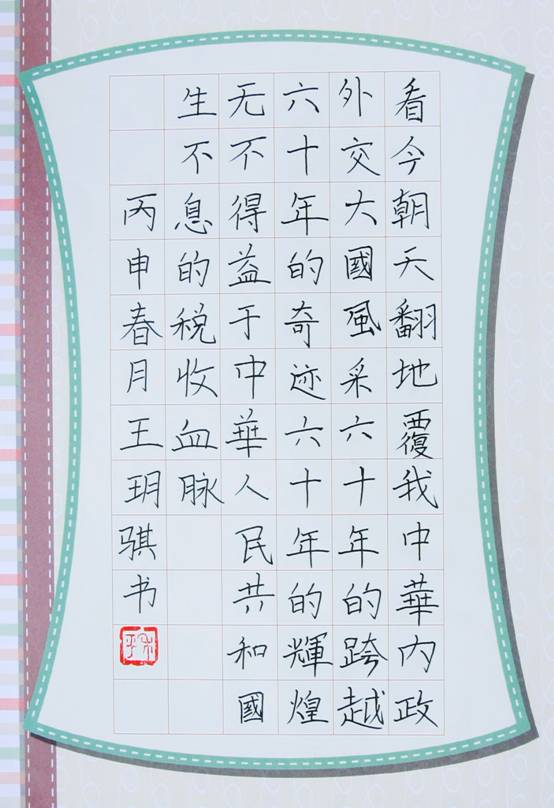 看今朝天翻地覆我中華内政
外交大國風采六十年的跨越
六十年的奇迹六十年的輝煌
无不得益于中華人民共和國
生不息的税收血脉
丙申春月王玥骐书